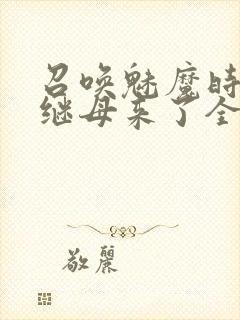 召唤魅魔时
继母来了全
敬麗